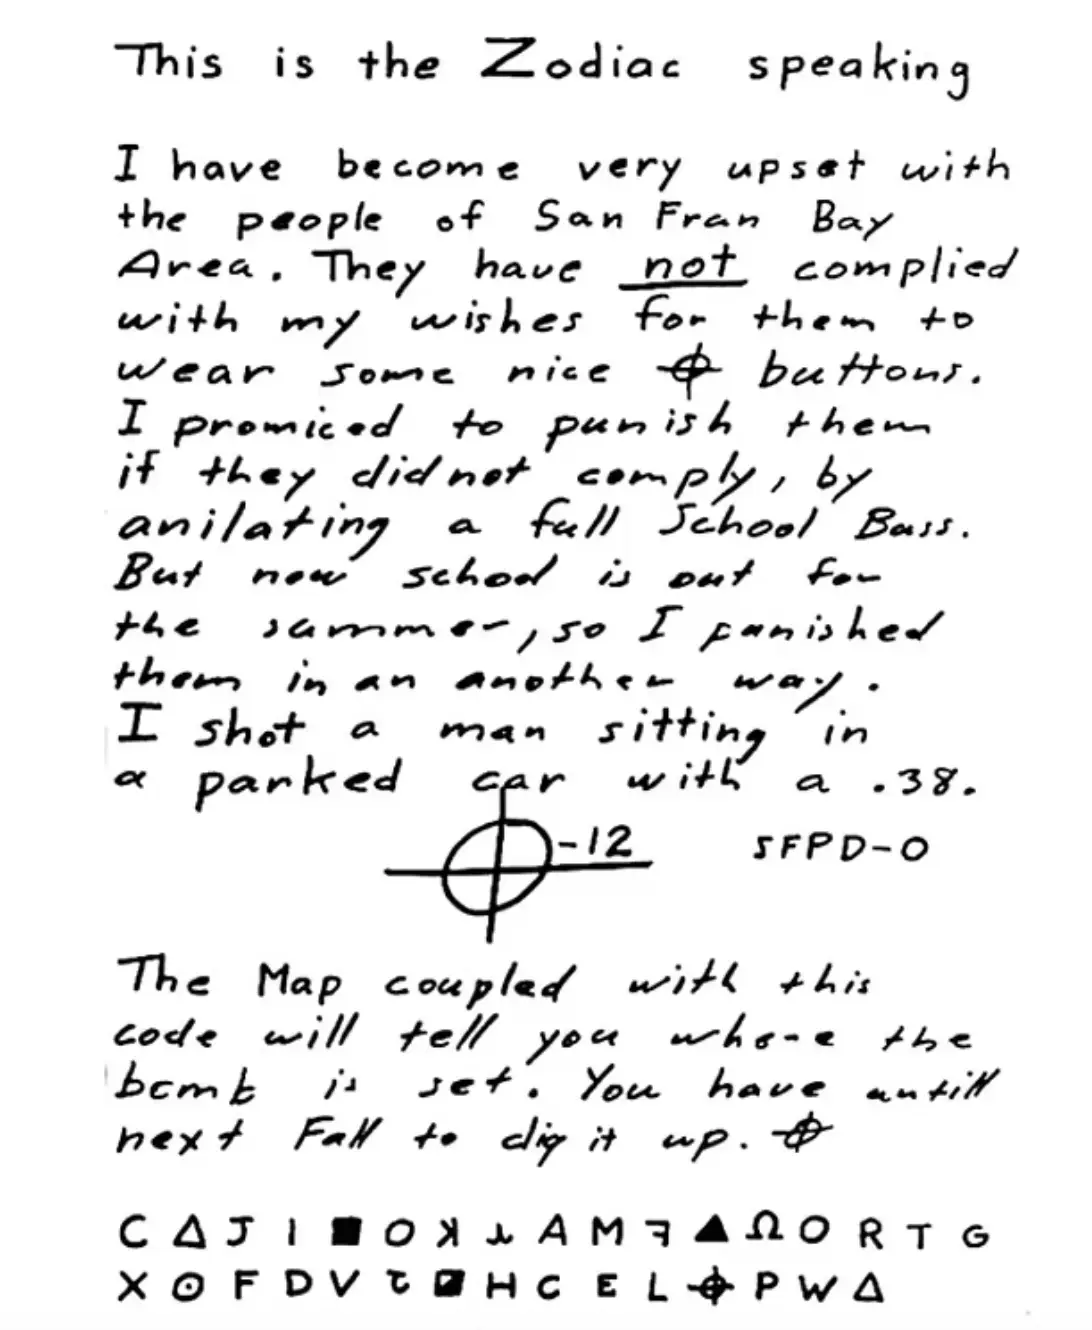 This is the Zodiac speaking
I have become very upset with
the people of San Fran Bay
Area. They have not complied
with my wishes for them to
wear some nice ⌖ buttons.
I promiced to punish them
if they did not comply, by
anilating a full School Buss.
But now school is out for
the summer, so I punished
them in an another way.
I shot a man sitting in
a parked car with a .38.
⌖-12 SFPD-0
The Map coupled with this
code will tell you where the
bomb is set. You have untill
next Fall to dig it up. ⌖
C Δ J I ■ O ꓘ ⅄ A M ꟻ ▲ Ω O R T G
X ⊙ F D V Ʇ ◪ H C E L ⌖ P W Δ